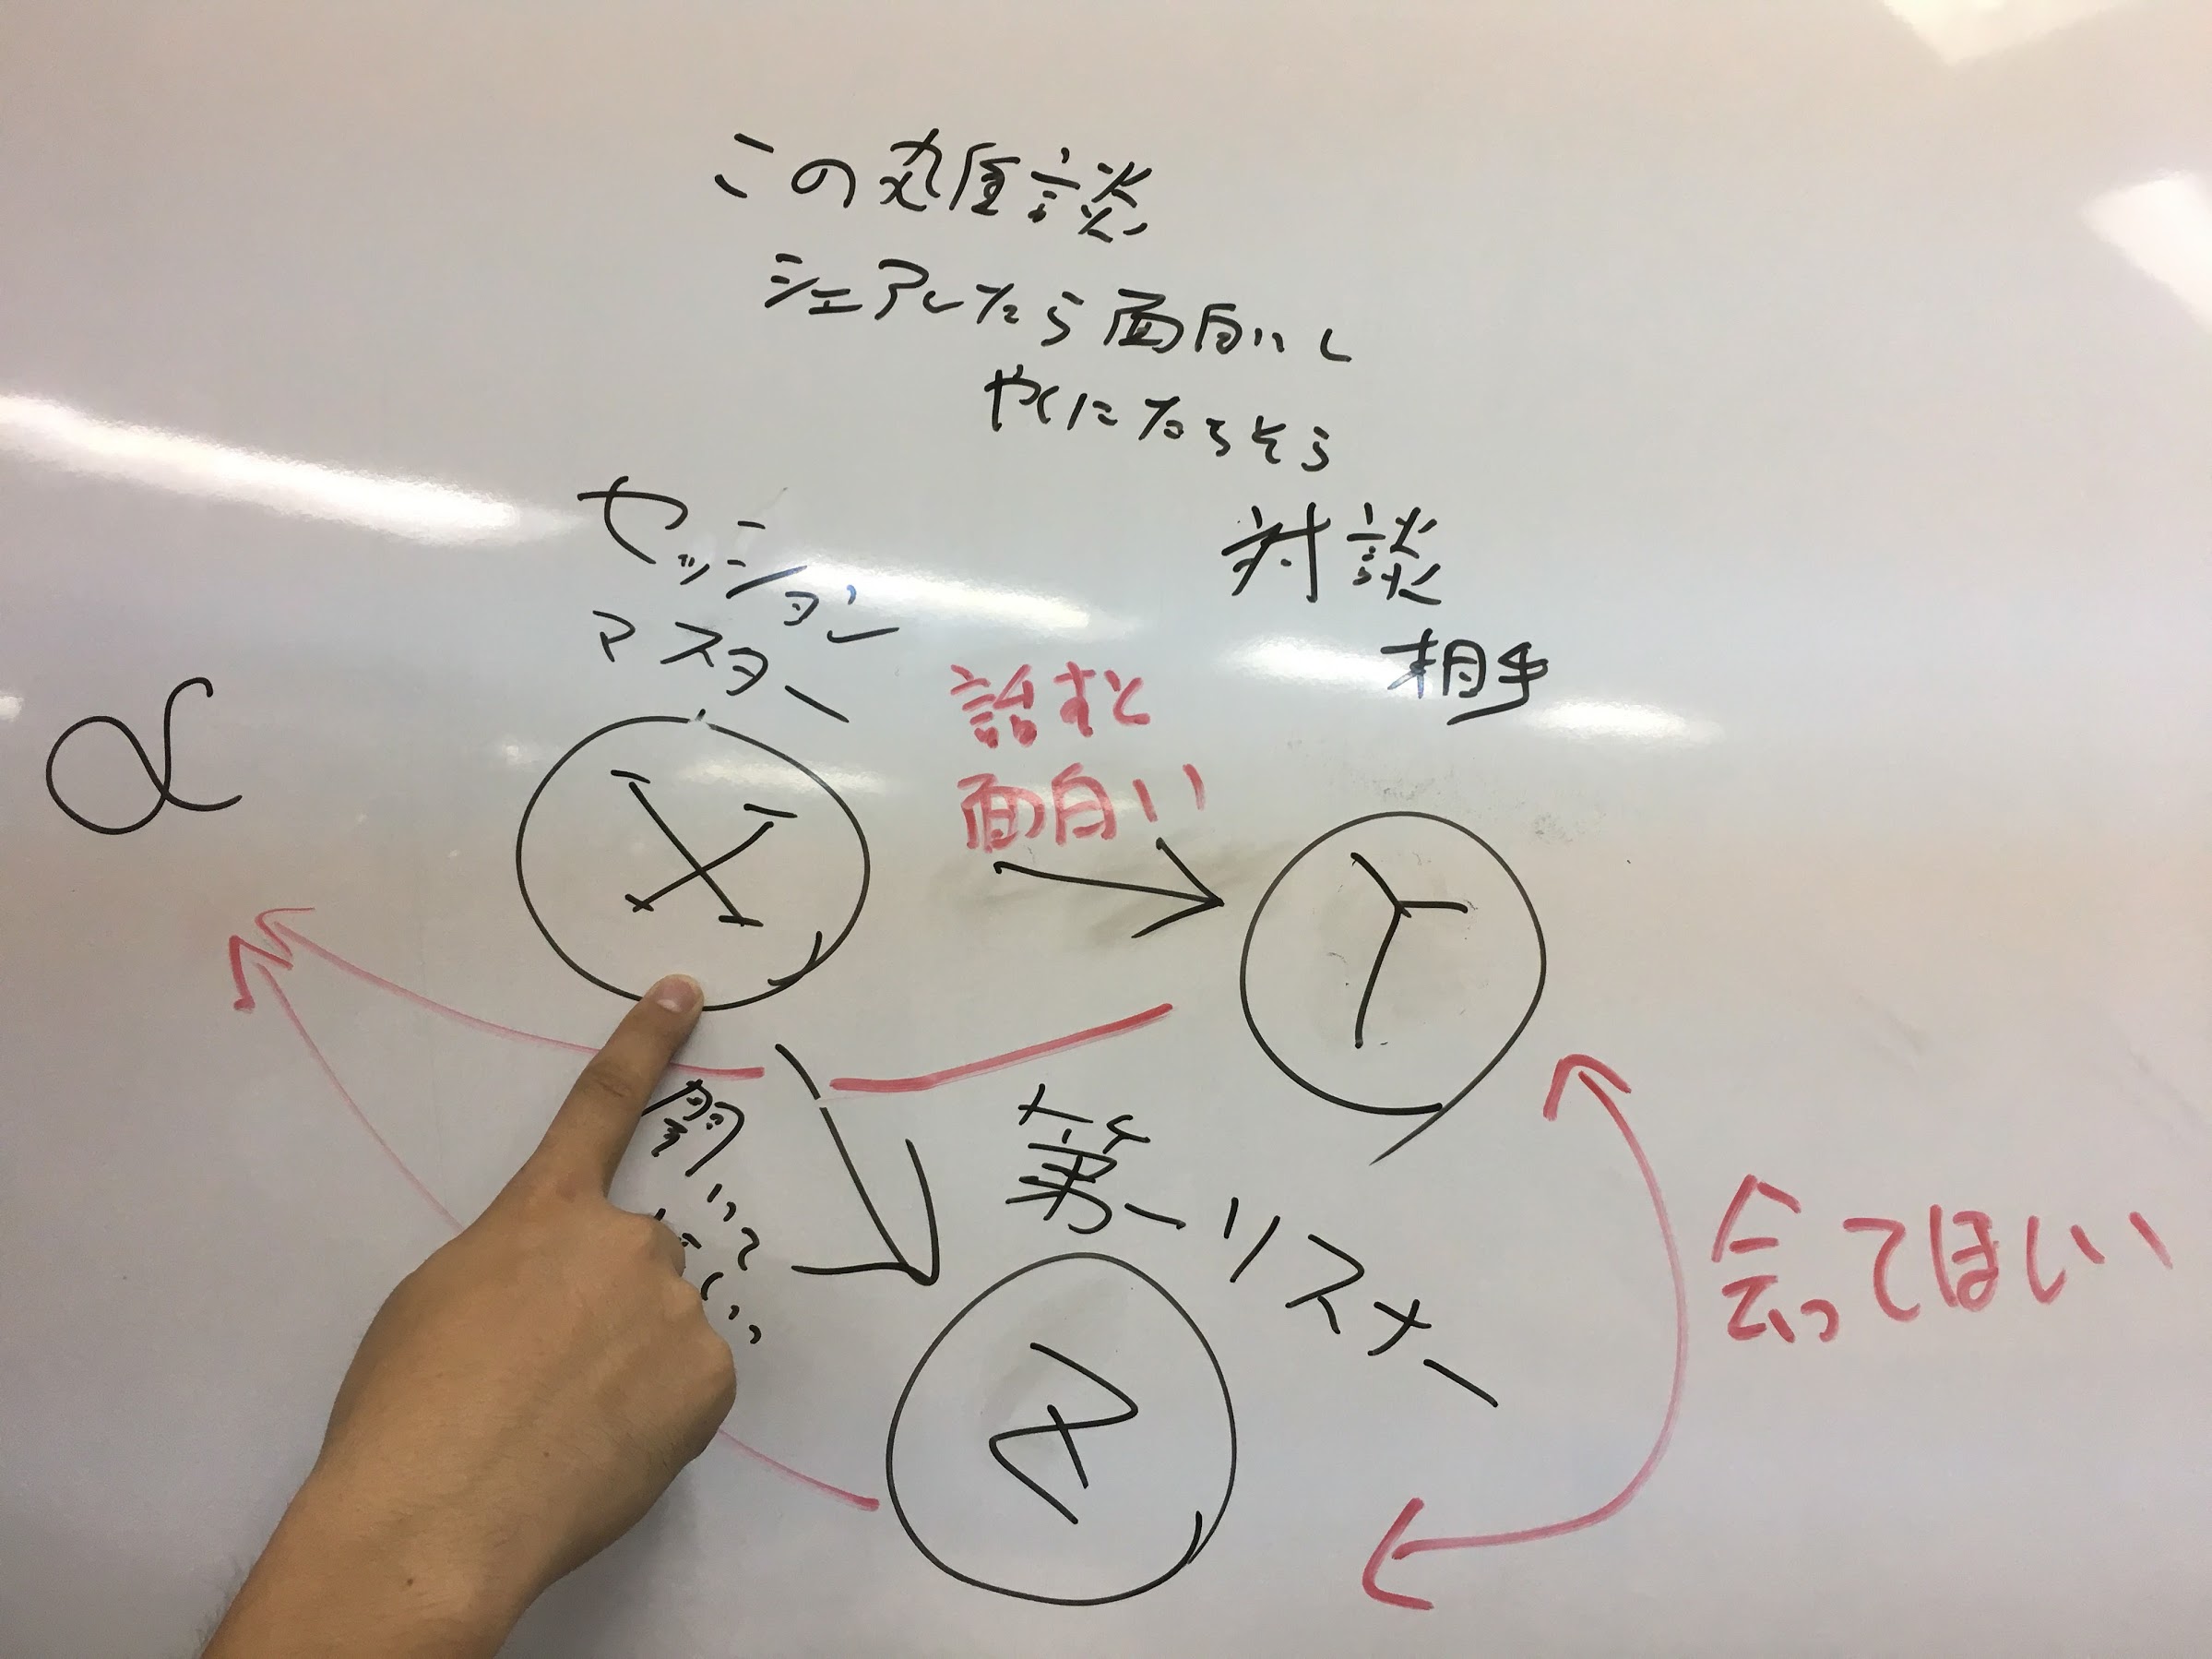 この 談
シェアしたら面白いし
やくにたちそう
セッション
マスター
対談
相手
話すと
面白い
α
X
Y
聞いて
ほしい
第一リスナー
Z
会ってほしい